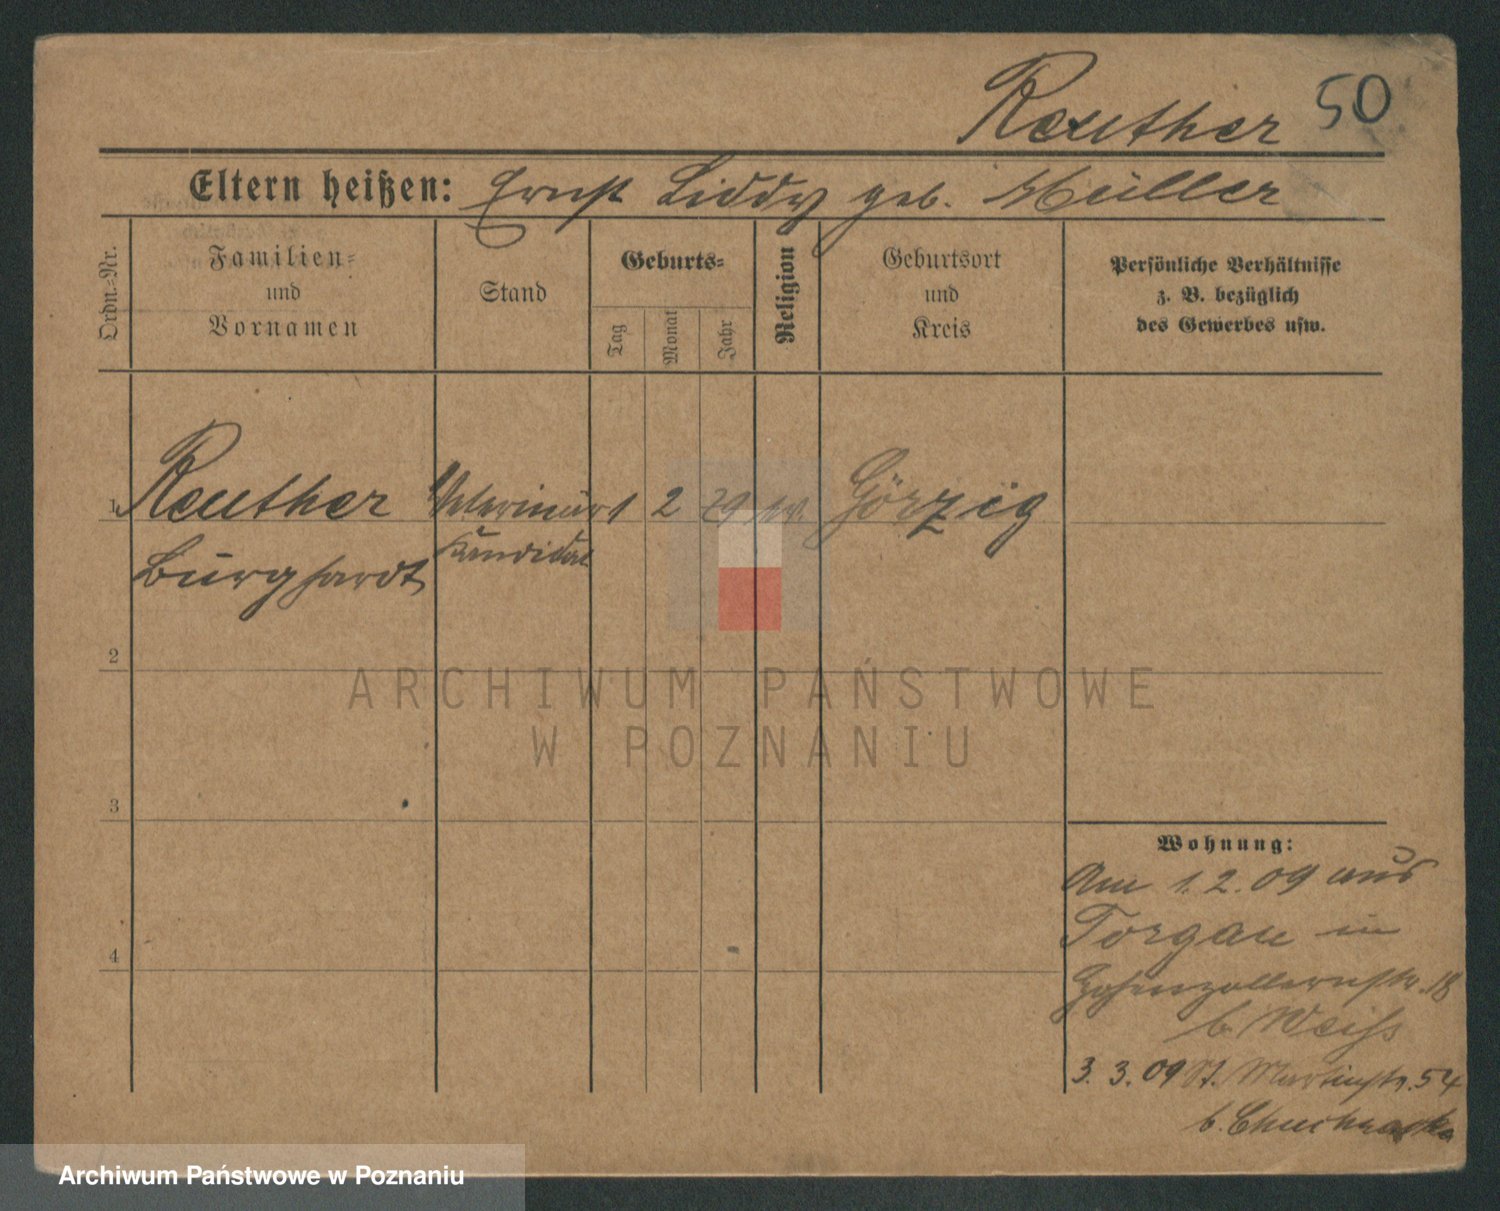 Reuther 50
Eltern heißen: Ernst Liddy geb. Müller
Ordn.-Nr.
Familien-
und
Vornamen
Stand
Geburts-
Tag
Monat
Jahr
Religion
Geburtsort
und
Kreis
Persönliche Verhältnisse
z. B. bezüglich
des Gewerbes usw.
1 Reuther Veterinär 1 2 79 ev. Görzig
Burghardt Kandidat
2
ARCHIWUM PAŃSTWOWE
W POZNANIU
3
Wohnung:
Am 1. 2. 09 aus
Torgau in
4
Hohenzollernstr. 18
b. Weiss
3. 3. 09 St. Martinstr. 54
b.
Archiwum Państwowe w Poznaniu